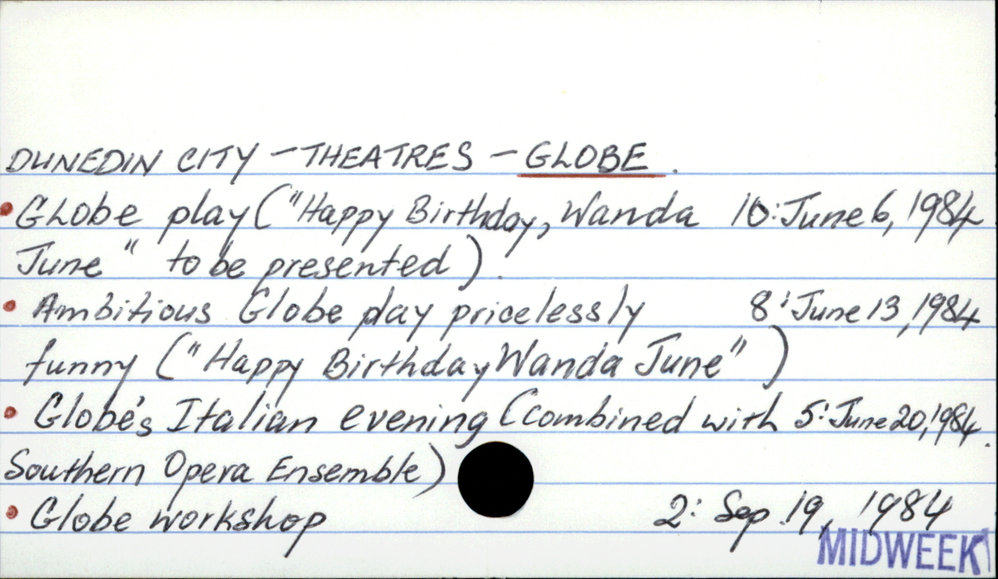 DUNEDIN CITY - THEATRES - GLOBE.
• Globe play ("Happy Birthday, Wanda 10: June 6, 1984
June" to be presented).
• Ambitious Globe play pricelessly 8: June 13, 1984
funny ("Happy Birthday Wanda June")
• Globe's Italian evening (combined with 5: June 20, 1984.
Southern Opera Ensemble)
• Globe workshop 2: Sep. 19, 1984
MIDWEEK